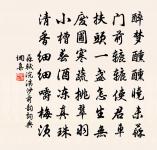 醉夢醺醺曉未蘇
門前轆轆使君車
扶頭一盞怎生無
廢圃寒蔬挑翠羽
小槽春酒凍真珠
清香細細嚼梅須
蘇軾浣溪沙前韻詞典
網集